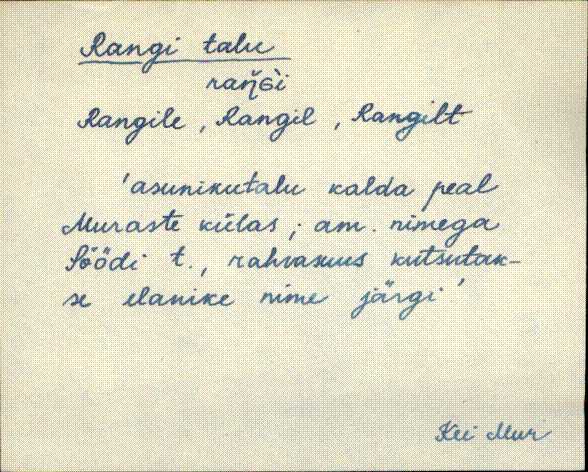 Rangi talu
raŋ̆ɢì
Rangile, Rangil, Rangilt
'asunikutalu kalda peal
Muraste külas; am. nimega
Söödi t., rahvasuus kutsutak-
se elanike nime järgi'
Kei Mur